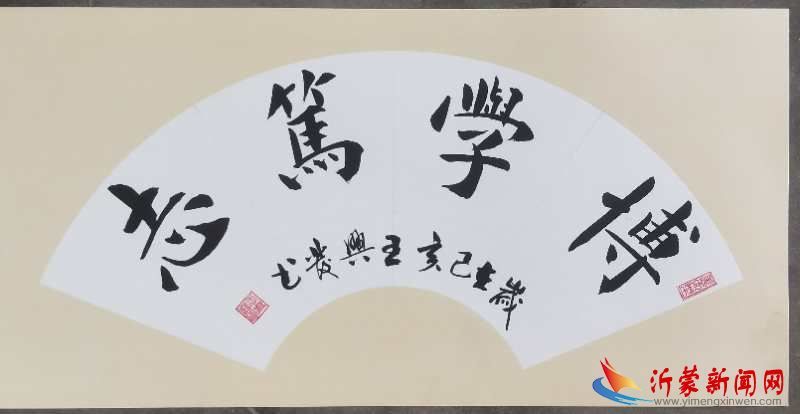 博學篤志
歲在己亥王興發書
沂蒙新闻网
www.yimengxinwen.com